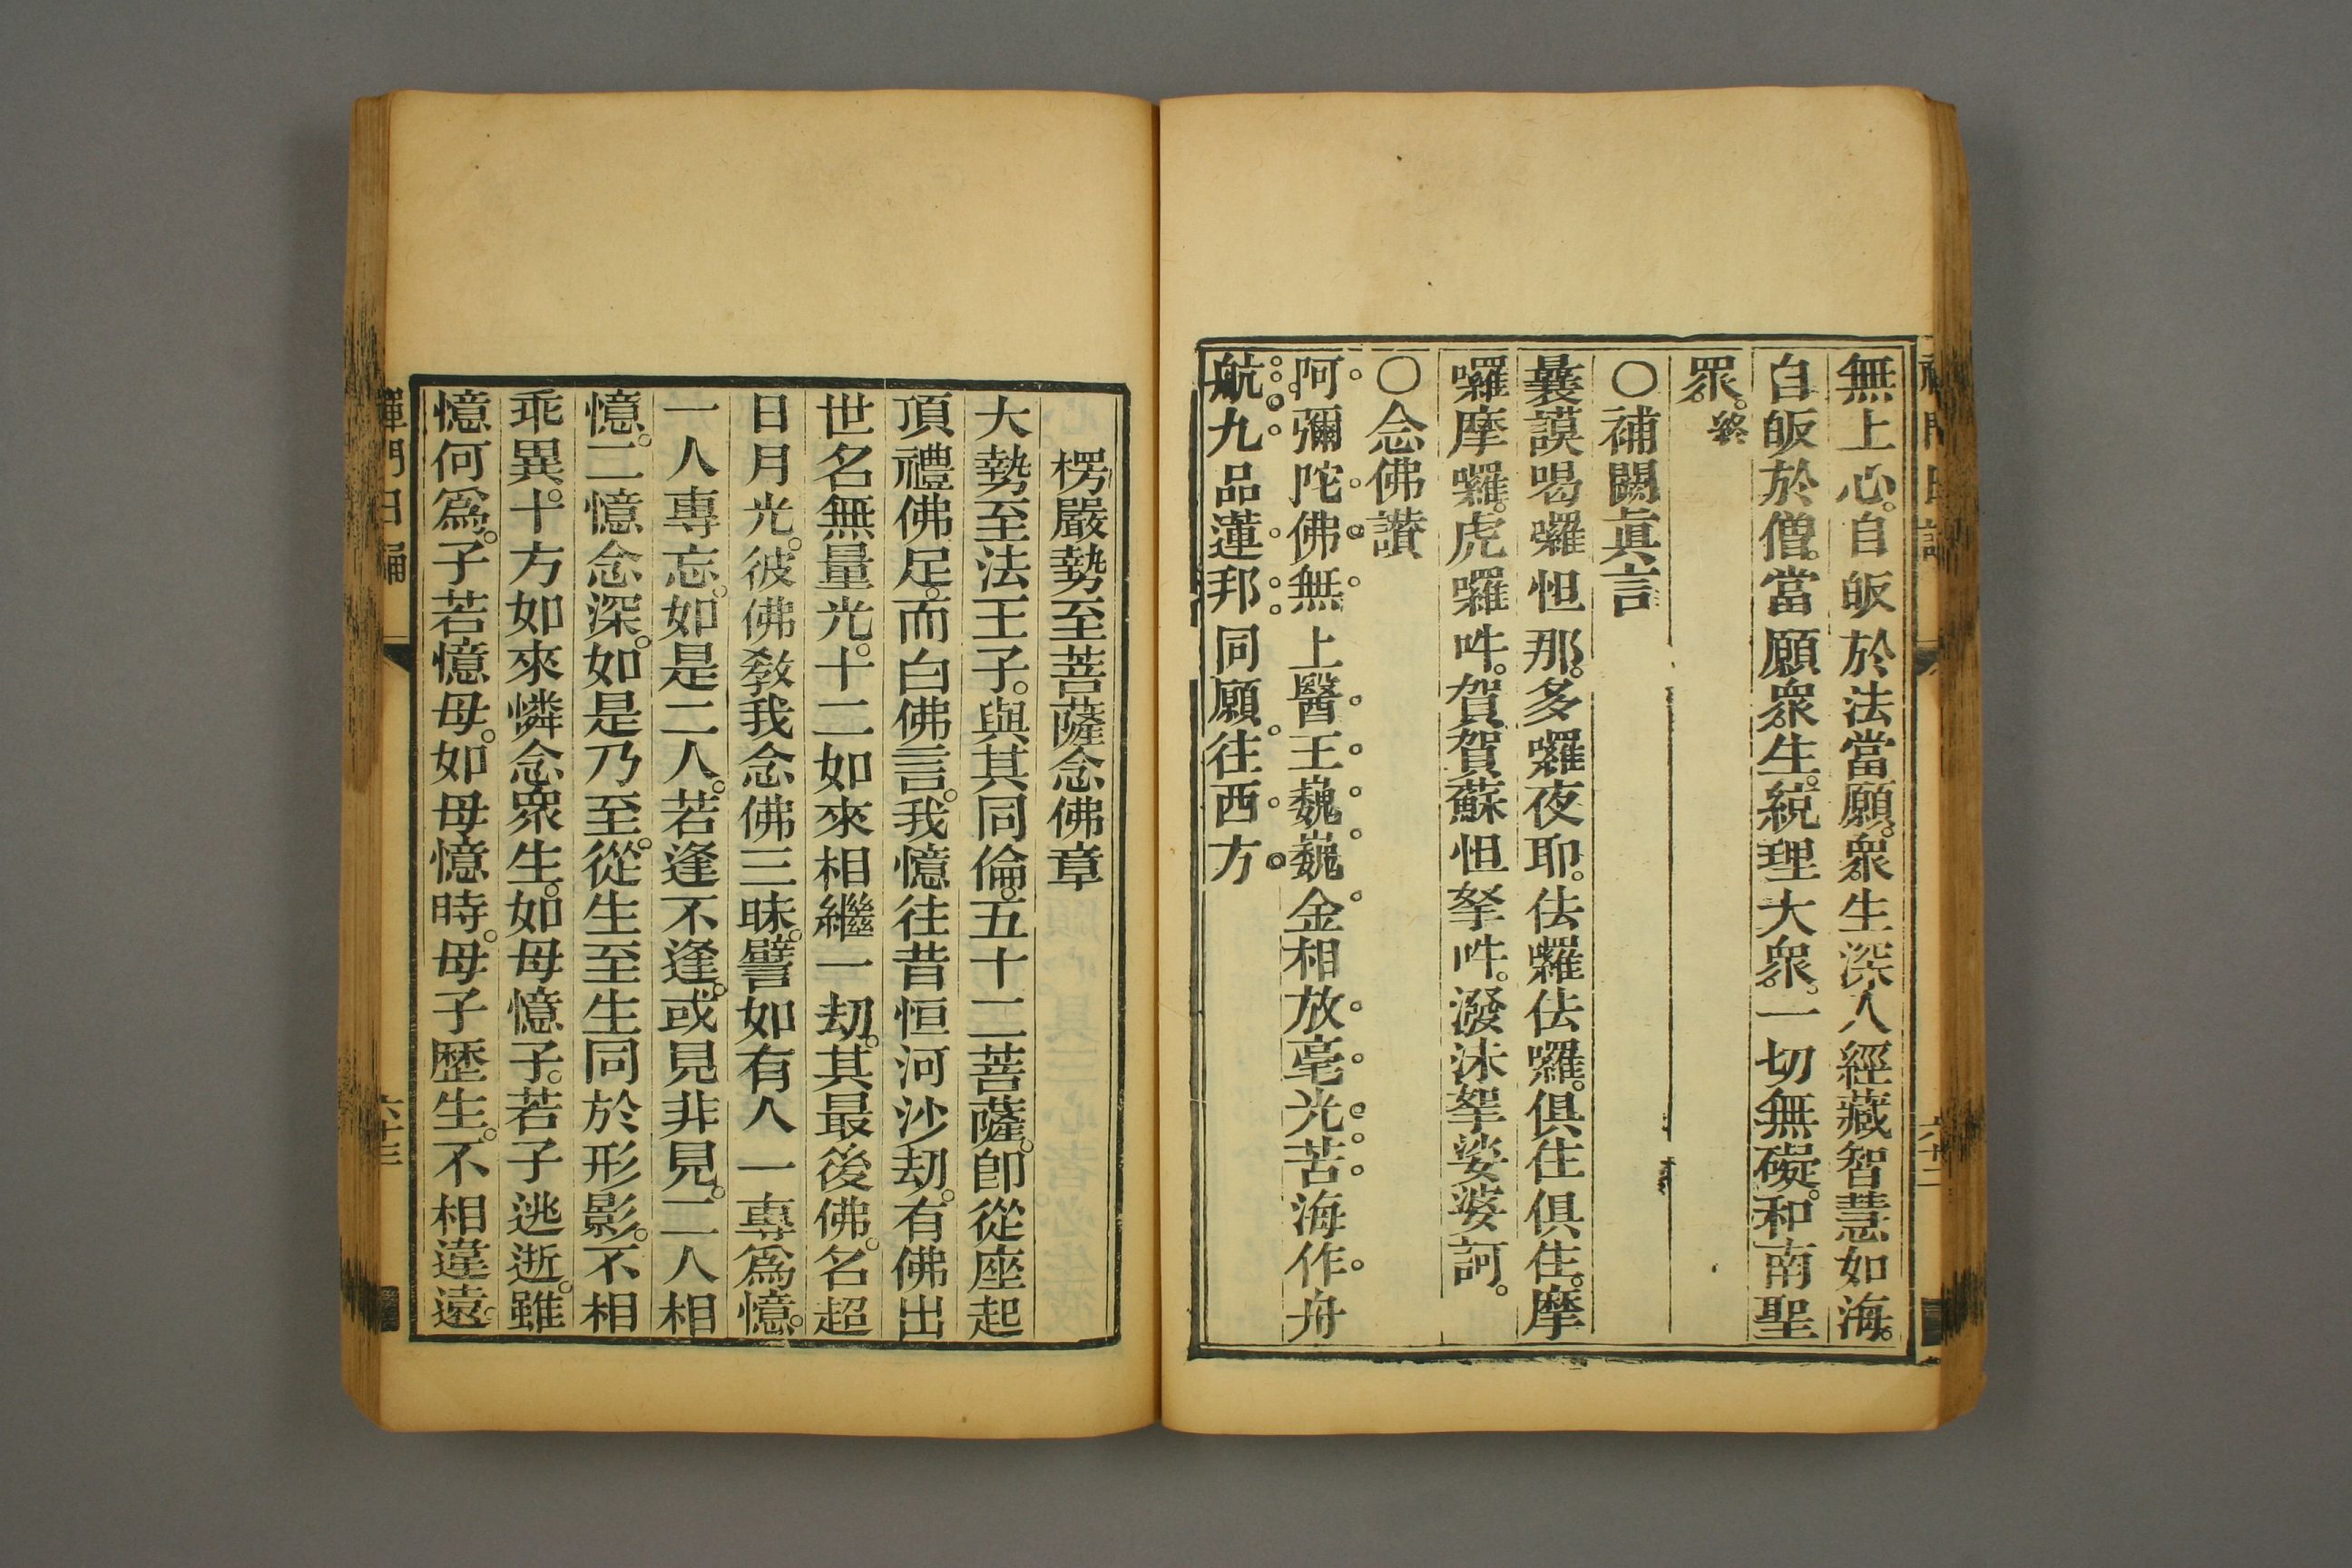 無上心。自皈於法當願。眾生深入經藏智慧如海。
自皈於僧。當願眾生。統理大眾。一切無礙。和南聖
眾。終
○補闕眞言
曩謨喝囉怛那。多囉夜耶。佉囉佉囉。俱住俱住。摩
囉摩囉。虎囉囉吽。賀賀蘇怛拏吽。潑沬拏娑婆訶。
○念佛讃
阿彌陀佛無上醫王巍巍金相放毫光苦海作舟
航九品蓮邦同願往西方
楞嚴勢至菩薩念佛章
大勢至法王子。與其同倫。五十二菩薩。卽從座起
頂禮佛足。而白佛言。我憶往昔恒河沙劫。有佛出
世名無量光。十二如來相繼一劫。其最後佛。名超
日月光。彼佛教我念佛三昧。譬如有人一專爲憶。
一人專忘。如是二人。若逢不逢。或見非見。二人相
憶。二憶念深。如是乃至。從生至生同於形影。不相
乖異。十方如來憐念眾生。如母憶子。若子逃逝。雖
憶何爲。子若憶母。如母憶時。母子歷生。不相違遠。
禪門日誦
六十三